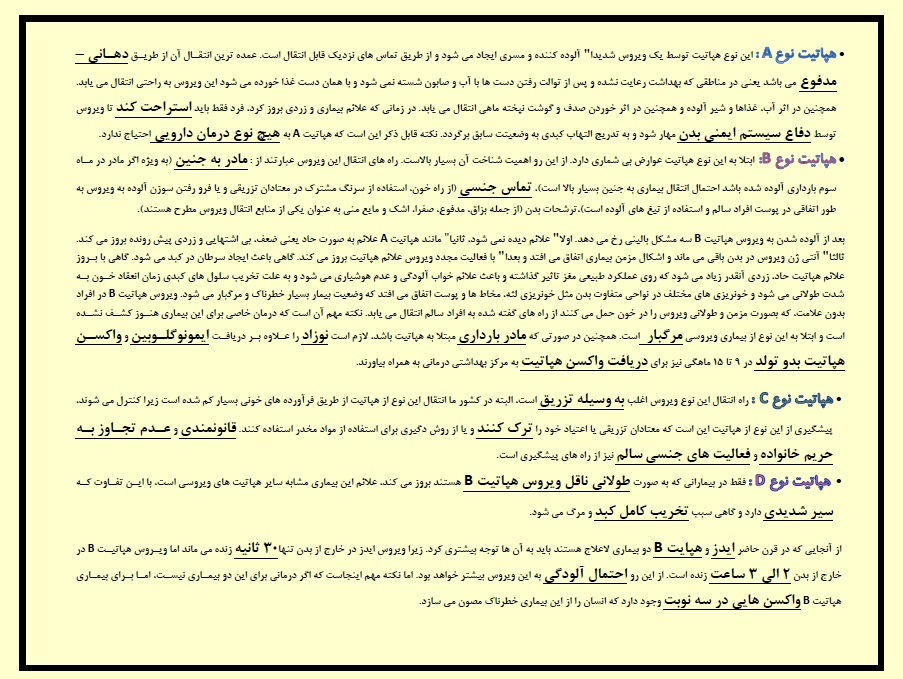 • هپاتیت نوع A : این نوع هپاتیت توسط یک ویروس شدیدا" آلوده کننده و مسری ایجاد می شود و از طریق تماس های نزدیک قابل انتقال است. عمده ترین انتقال آن از طریق دهانی –
مدفوع می باشد یعنی در مناطقی که بهداشت رعایت نشده و پس از توالت رفتن دست ها با آب و صابون شسته نمی شود و با همان دست غذا خورده می شود این ویروس به راحتی انتقال می یابد.
همچنین در اثر آب، غذاها و شیر آلوده و همچنین در اثر خوردن صدف و گوشت نپخته ماهی انتقال می یابد. در زمانی که علائم بیماری و زردی بروز کرد، فرد فقط باید استراحت کند تا ویروس
توسط دفاع سیستم ایمنی بدن مهار شود و به تدریج التهاب کبدی به وضعیتت سابق برگردد. نکته قابل ذکر این است که هپاتیت A به هیچ نوع درمان دارویی احتیاج ندارد.
• هپاتیت نوع B: ابتلا به این نوع هپاتیت عوارض بی شماری دارد. از این رو اهمیت شناخت آن بسیار بالاست. راه های انتقال این ویروس عبارتند از : مادر به جنین (به ویژه اگر مادر در ماه
سوم بارداری آلوده شده باشد احتمال انتقال بیماری به جنین بسیار بالا است)، تماس جنسی (از راه خون، استفاده از سرنگ مشترک در معتادان تزریقی و یا فرو رفتن سوزن آلوده به ویروس به
طور اتفاقی در پوست افراد سالم و استفاده از تیغ های آلوده است)،ترشحات بدن (از جمله بزاق، مدفوع، صفرا، اشک و مایع منی به عنوان یکی از منابع انتقال ویروس مطرح هستند).
بعد از آلوده شدن به ویروس هپاتیت B سه مشکل بالینی رخ می دهد. اولا" علائم دیده نمی شود، ثانیا" مانند هپاتیت A علائم به صورت حاد یعنی ضعف، بی اشتهایی و زردی پیش رونده بروز می کند.
ثالثا" آنتی ژن ویروس در بدن باقی می ماند و اشکال مزمن بیماری اتفاق می افتد و بعدا" با فعالیت مجدد ویروس علائم هپاتیت بروز می کند. گاهی باعث ایجاد سرطان در کبد می شود. گاهی با بروز
علائم هپاتیت حاد، زردی آنقدر زیاد می شود که روی عملکرد طبیعی مغز تاثیر گذاشته و باعث علائم خواب آلودگی و عدم هوشیاری می شود و به علت تخریب سلول های کبدی زمان انعقاد خون به
شدت طولانی می شود و خونریزی های مختلف در نواحی متفاوت بدن مثل خونریزی لثه، مخاط ها و پوست اتفاق می افتد که وضعیت بیمار بسیار خطرناک و مرگبار می شود. ویروس هپاتیت B در افراد
بدون علامت، که بصورت مزمن و طولانی ویروس را در خون حمل می کنند از راه های گفته شده به افراد سالم انتقال می یابد. نکته مهم آن است که درمان خاصی برای این بیماری هنوز کشف نشده
است و ابتلا به این نوع از بیماری ویروسی مرگبار است. همچنین در صورتی که مادر بارداری مبتلا به هپاتیت باشد، لازم است نوزاد را علاوه بر دریافت ایمونوگلوبین و واکسن
هپاتیت بدو تولد در ۹ تا ۱۵ ماهگی نیز برای دریافت واکسن هپاتیت به مرکز بهداشتی درمانی به همراه بیاورند.
• هپاتیت نوع C : راه انتقال این نوع ویروس اغلب به وسیله تزریق است، البته در کشور ما انتقال این نوع از هپاتیت از طریق فرآورده های خونی بسیار کم شده است زیرا کنترل می شوند،
پیشگیری از این نوع از هپاتیت این است که معتادان تزریقی یا اعتیاد خود را ترک کنند و یا از روش دگیری برای استفاده از مواد مخدر استفاده کنند. قانونمندی و عدم تجاوز به
حریم خانواده و فعالیت های جنسی سالم نیز از راه های پیشگیری است.
• هپاتیت نوع D : فقط در بیمارانی که به صورت طولانی ناقل ویروس هپاتیت B هستند بروز می کند، علائم این بیماری مشابه سایر هپاتیت های ویروسی است، با این تفاوت که
سیر شدیدی دارد و گاهی سبب تخریب کامل کبد و مرگ می شود.
از آنجایی که در قرن حاضر ایدز و هپایت B دو بیماری لاعلاج هستند باید به آن ها توجه بیشتری کرد. زیرا ویروس ایدز در خارج از بدن تنها ۳۰ ثانیه زنده می ماند اما ویروس هپاتیت B در
خارج از بدن ۲ الی ۳ ساعت زنده است. از این رو احتمال آلودگی به این ویروس بیشتر خواهد بود. اما نکته مهم اینجاست که اگر درمانی برای این دو بیماری نیست، اما برای بیماری
هپاتیت B واکسن هایی در سه نوبت وجود دارد که انسان را از این بیماری خطرناک مصون می سازد.